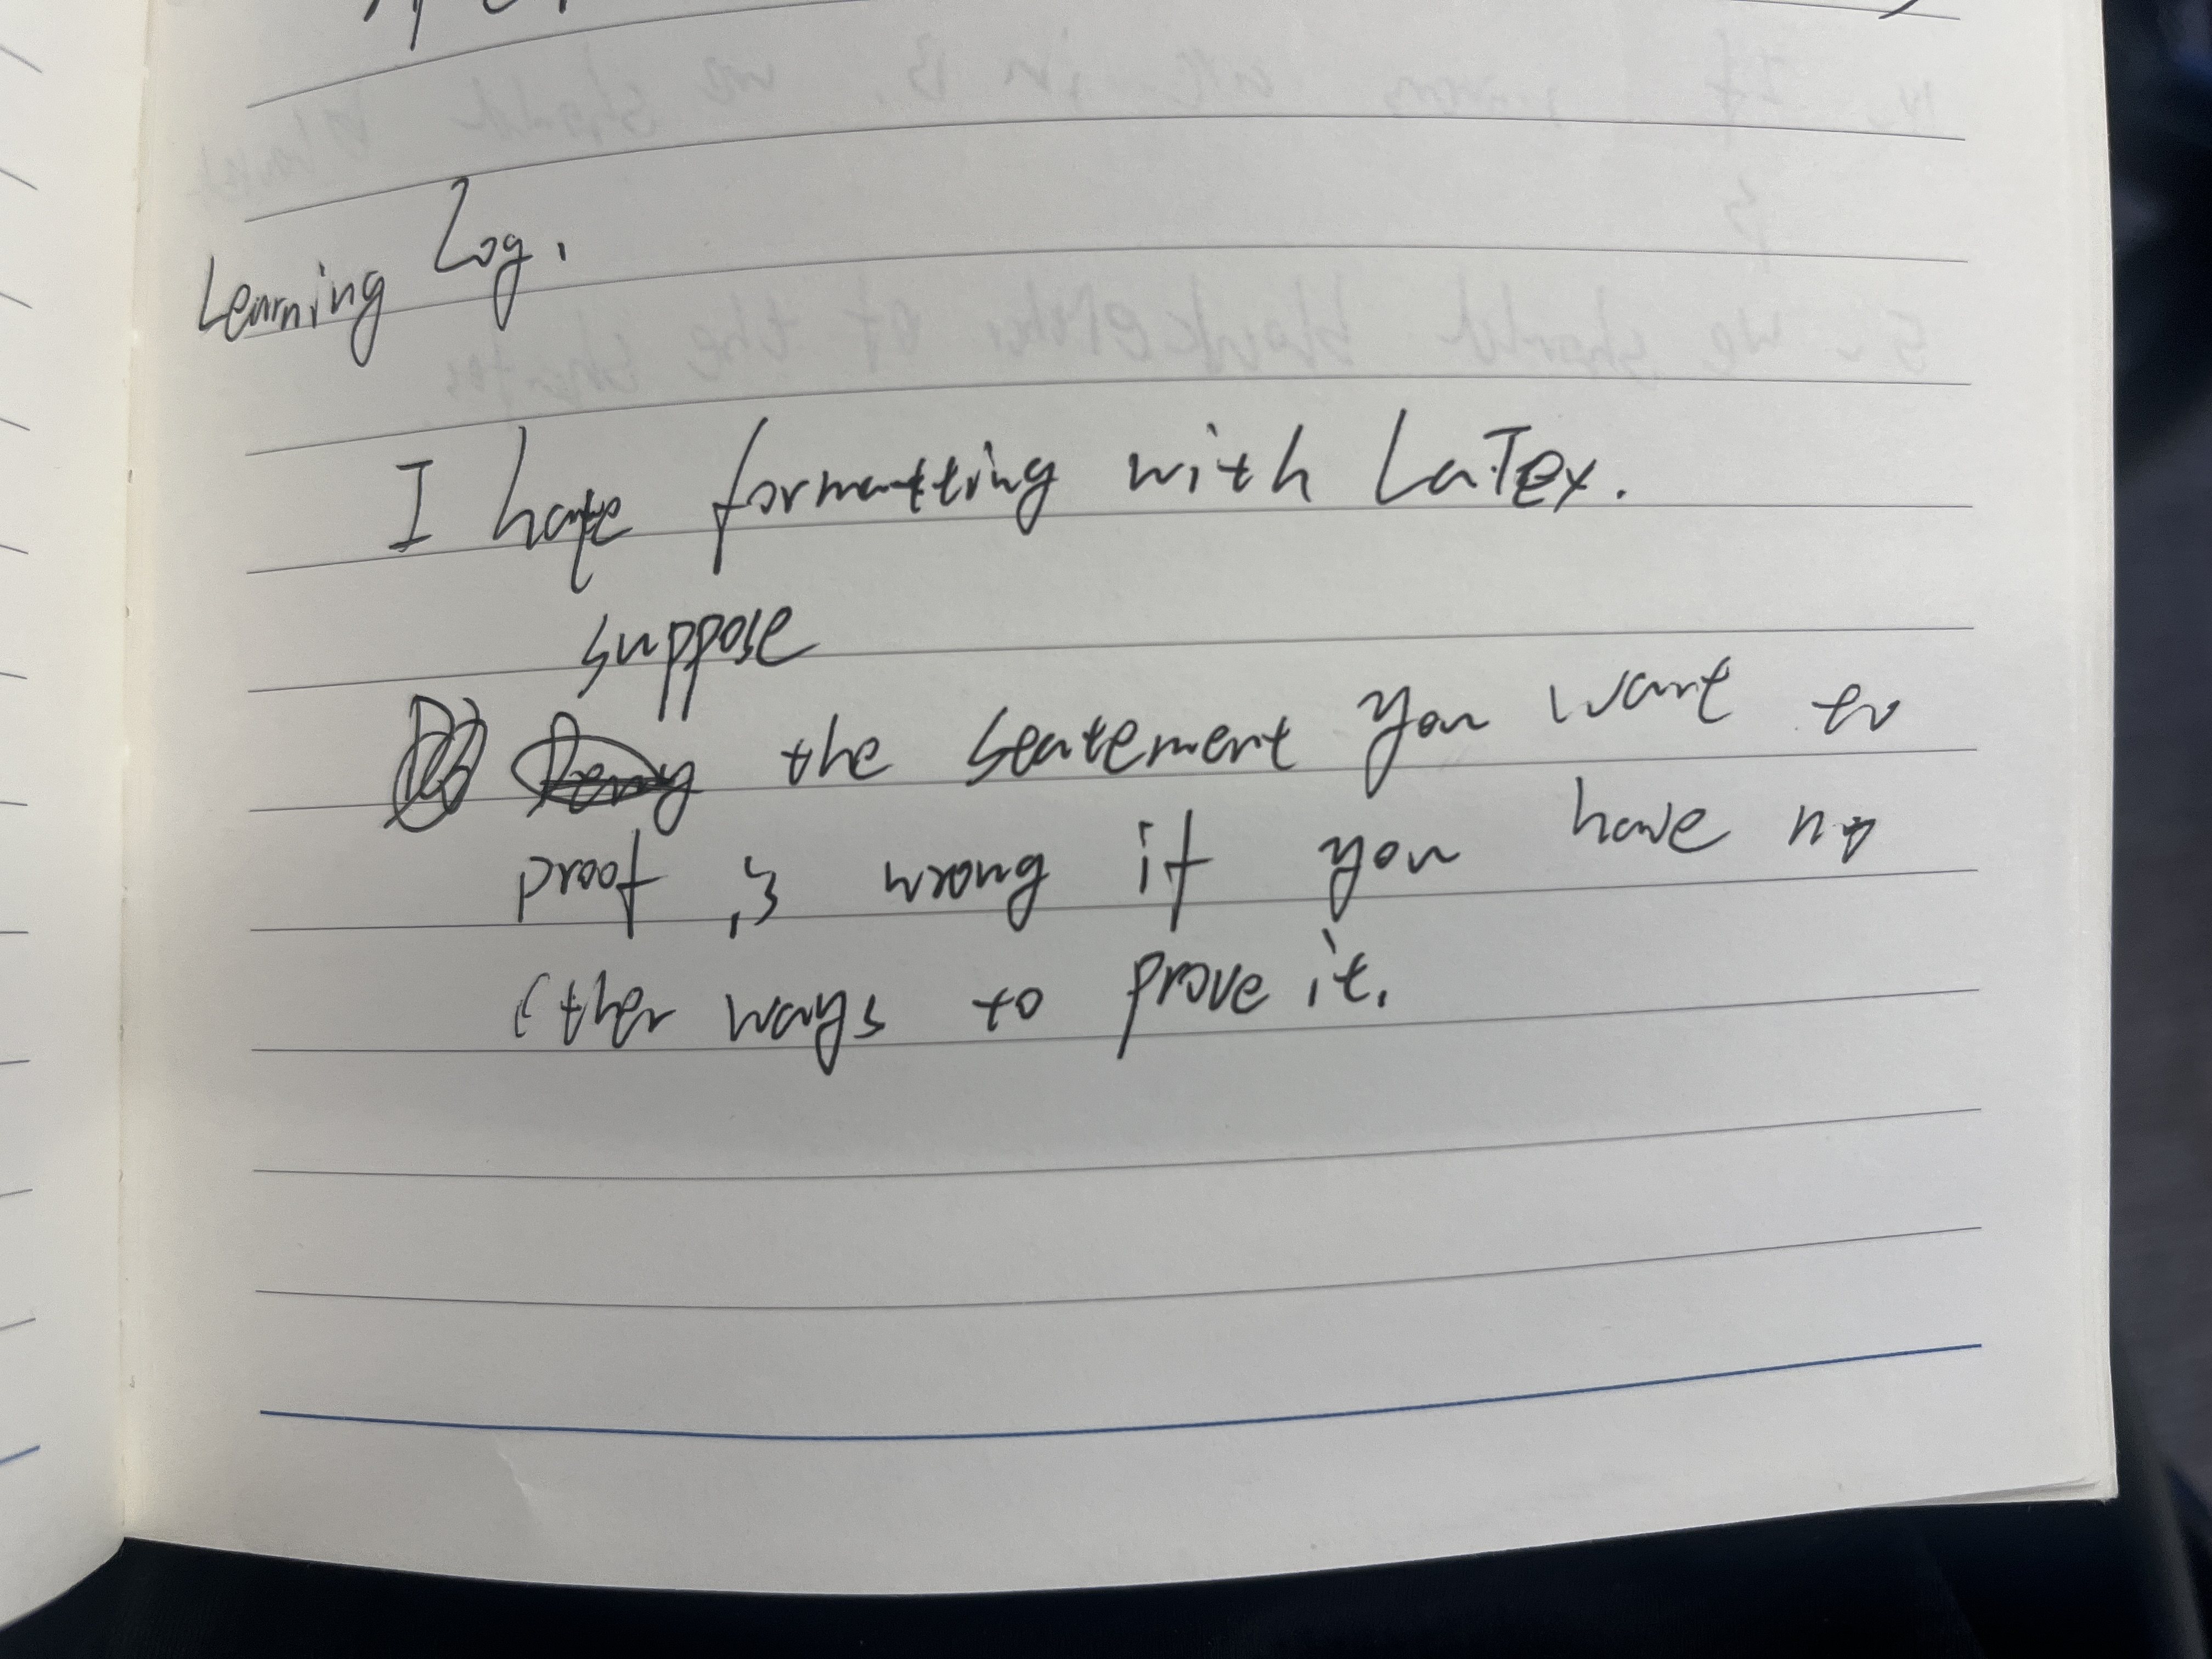 Learning Log.
I hate formatting with LaTex.
suppose
the statement you want to
proof is wrong if you have no
other ways to prove it.